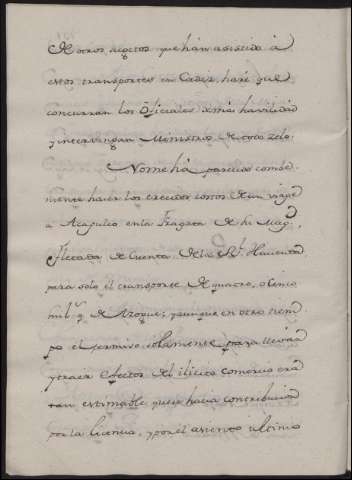 de otros sugetos que han asistido á
estos transportes en Cadiz, haré que
concurran los Oficiales de mas havilidad
y intervengan Ministros de todo zelo.
No me há parecido combe-
niente hacer los crecidos costos de un viage
a Acapulco en la Fragata de su Magd.
fletada de cuenta de la Rl. Hacienda
para solo el transporte de quatro, o cinco
mil qs. de Azogue; y aunque en otro tiem-
po el permiso solamente para llevar
y traer efectos del ilicito comercio era
tan estimable que se hacia contribucion
por la licencia, y por el asiento ultimo